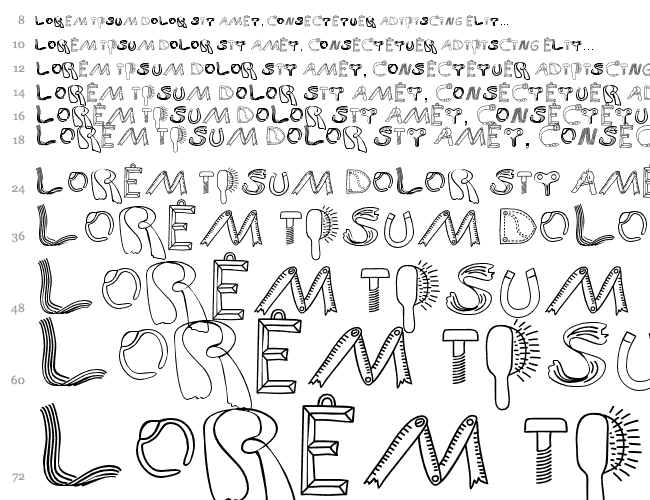 8 LOREM IPSUM DOLOR SIT AMET, CONSECTETUER ADIPISCING ELIT...
10 LOREM IPSUM DOLOR SIT AMET, CONSECTETUER ADIPISCING ELIT...
12 LOREM IPSUM DOLOR SIT AMET, CONSECTETUER ADIPISCING
14 LOREM IPSUM DOLOR SIT AMET, CONSECTETUER AD
16 LOREM IPSUM DOLOR SIT AMET, CONSECTE
18 LOREM IPSUM DOLOR SIT AMET, CONSEC
24 LOREM IPSUM DOLOR SIT AME
36 LOREM IPSUM DOLO
48 LOREM IPSUM
60 LOREM IPSU
72 LOREM IP